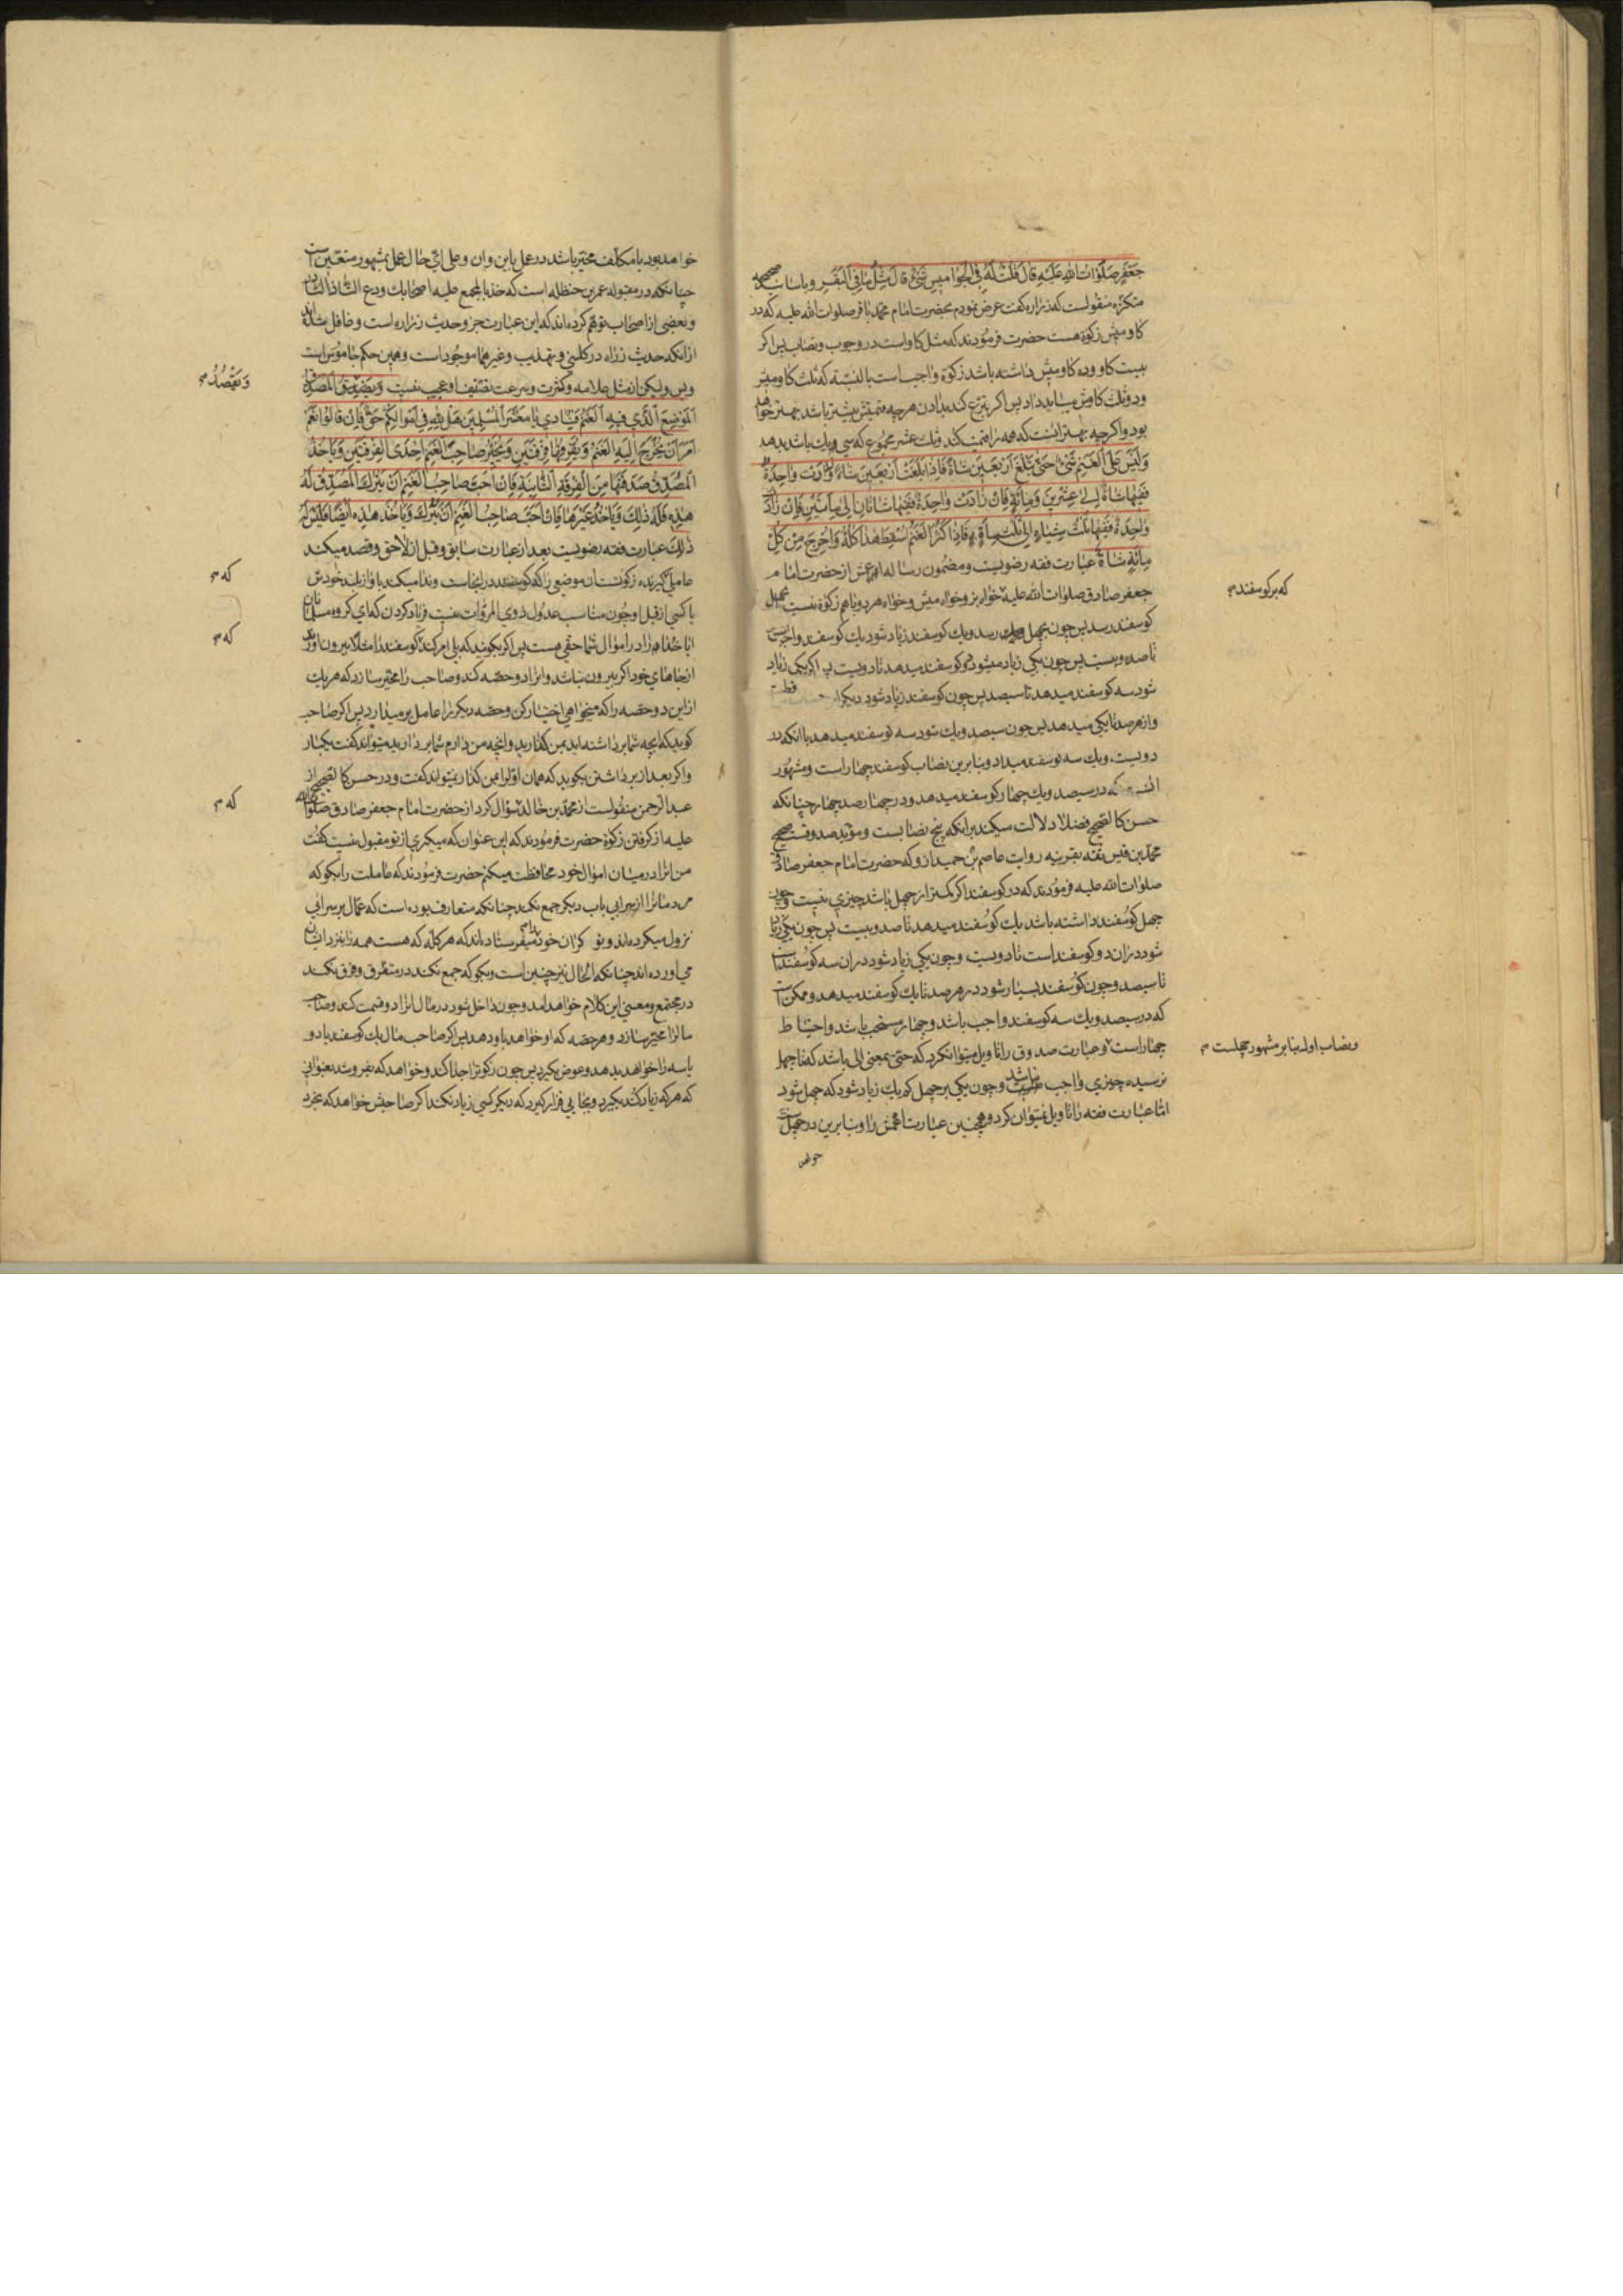 جَعْفَرٍ صَلَوٰاتُ اللّٰهِ عَلَيْهِ قٰالَ قُلْتُ لَهُ فِي الْجَوٰامِيسِ شَيْءٌ قٰالَ مِثْلُ مٰا فِي الْبَقَرِ و باسانيد صحيحه
متكثره منقولست كه زراره كفت عرض نمودم بحضرت امام محمد باقر صلوات الله عليه كه در
كاوميش زكوة هست حضرت فرمودند كه مثل كاواست در وجوب و نصاب پس اكر
بيست كاو و ده كاوميش داشته باشد زكوة واجب است بالنسبه كه ثلث كاوميش
و دو ثلث كاوش ميبايد داد پس اكر تبرع كند بدادن هرچه قيمتش بيشتر باشد بهتر خواهد
بود و اكرچه بهتر اينست كه همه را قيمت كند و يك عشر مجموع كه سي و يك باشد بدهد
وَلَيْسَ عَلَى الْغَنَمِ شَيْءٌ حَتّٰى تَبْلُغَ أَرْبَعِينَ شٰاةً فَإِذٰا بَلَغَتْ أَرْبَعِينَ شٰاةً وَزٰادَتْ وٰاحِدَةٌ
فَفِيهٰا شٰاةٌ إِلىٰ عِشْرِينَ وَمِائَةٍ فَإِنْ زٰادَتْ وٰاحِدَةٌ فَفِيهٰا شٰاتٰانِ إِلىٰ مِأَتَيْنِ فَإِنْ زٰادَتْ
وٰاحِدَةٌ فَفِيهٰا ثَلٰثُ شِيٰاهٍ إِلىٰ ثَلٰثِ مِائَةٍ فَإِذٰا كَثُرَ الْغَنَمُ أُسْقِطَ هٰذٰا كُلُّهُ وَأُخْرِجَ مِنْ كُلِّ
مِائَةٍ شٰاةٌ عبارت فقه رضويست و مضمون رساله اعمش از حضرت امام
جعفر صادق صلوات الله عليه خواه بز و خواه ميش و خواه هر دو با هم زكوة نيست تا بچهل
كوسفند رسد پس چون بچهل و يك رسد و يك كوسفند زياد شود يك كوسفند واجبست
تا صد و بيست پس چون يكي زياد ميشود دو كوسفند ميدهد تا دويست پس اكر يكي زياد
شود سه كوسفند ميدهد تا سيصد پس چون كوسفند زياد شود ديكر
و از هر صد تا يكي ميدهد پس چون سيصد و يك شود سه كوسفند ميدهد با آنكه در
دويست و يك سه كوسفند ميداد و بنا برين نصاب كوسفند چهار است و مشهور
كه در سيصد و يك چهار كوسفند ميدهد و در چهار صد چهار چنانكه
حسن كالصحيح فضلا دلالت ميكند برانكه پنج نصابست و مؤيد صدوقست صحيح
محمد بن قيس ثقه بقرينه روايت عاصم بن حميد ازو كه حضرت امام جعفر صادق
صلوات الله عليه فرمودند كه در كوسفند اكر كمتر از چهل باشد چيزي نيست و چون
چهل كوسفند داشته باشد يك كوسفند ميدهد تا صد و بيست پس چون يكي زياد
شود دران دو كوسفند است تا دويست و چون يكي زياد شود دران سه كوسفند است
تا سيصد و چون كوسفند بسيار شود در هر صد تا يك كوسفند ميدهد و ممكن است
كه در سيصد و يك سه كوسفند واجب باشد و چهار مستحب باشد و احتياط
چهار است و عبارت صدوق را تاويل ميتوان كرد كه حتى بمعني الى باشد كه تا چهل
نرسيده چيزي واجب نباشد و چون يكي بر چهل كم يك زياد شود كه چهل شود
امّا عبارت فقه را تاويل نميتوان كرد و همچنين عبارت اعمش را و بنا برين در چهل
خواهد
كه بر كوسفند م
و نصاب اول بنا بر مشهور چهلست م
خواهد بود يا مكلف مخير باشد در عمل باين و ان و على اي حال عمل بمشهور متعين است
چنانكه در مقبوله عمر بن حنظله است كه خذ بالمجمع عليه اصحابك و دع الشاذ النادر
و بعضي از اصحاب توهم كرده اند كه اين عبارت جزو حديث زراره است و غافل شده اند
از انكه حديث زراره در كليني و تهذيب و غيرهما موجود است و همين حكم جاموس است
و بس و ليكن از مثل علامه و كثرت و سرعت تصنيف او عجب نيست وَيَقْصِدُ الْمُصَدِّقُ
الْمَوْضِعَ الَّذِي فِيهِ الْغَنَمُ فَيُنٰادِي يٰا مَعْشَرَ الْمُسْلِمِينَ هَلْ لِلّٰهِ فِي أَمْوٰالِكُمْ حَقٌّ فَإِنْ قٰالُوا نَعَمْ
أَمَرَ أَنْ يُخْرَجَ إِلَيْهِ الْغَنَمُ وَيُفَرِّقُهٰا فِرْقَتَيْنِ وَيُخَيِّرُ صٰاحِبَ الْغَنَمِ إِحْدَى الْفِرْقَتَيْنِ وَيَأْخُذُ
الْمُصَدِّقُ صَدَقَتَهٰا مِنَ الْفِرْقَةِ الثّٰانِيَةِ فَإِنْ أَحَبَّ صٰاحِبُ الْغَنَمِ أَنْ يَتْرُكَ الْمُصَدِّقُ لَهُ
هٰذِهِ فَلَهُ ذٰلِكَ وَيَأْخُذُ غَيْرَهٰا فَإِنْ أَحَبَّ صٰاحِبُ الْغَنَمِ أَنْ يَتْرُكَ وَيَأْخُذَ هٰذِهِ أَيْضًا فَلَيْسَ لَهُ
ذٰلِكَ عبارت فقه رضويست بعد از عبارت سابق و قبل از لاحق و قصد ميكند
عامل كيرنده زكوتستان موضعي را كه كوسفند در انجاست و ندا ميكند باواز بلند خودش
يا كسي از قبل او چون مناسب عدول ذوي المروات نيست فرياد كردن كه اي كروه مسلمانان
ايا خدا را در اموال شما حقي هست پس اكر بكويند كه بلي امر كند كوسفند را مثلا بيرون اورند
از جاهاي خود اكر بيرون نباشد و انرا دو حصه كند و صاحب را مخير سازد كه هر يك
از اين دو حصه را كه ميخواهي اختيار كن و حصه ديكر را عامل بر ميدارد پس اكر صاحب
كويد كه انچه شما برداشته ايد بمن كذاريد و انچه من دارم شما برداريد ميتواند كفت يكبار
و اكر بعد از برداشتن بكويد كه همان اول را بمن كذار نميتواند كفت و در حسن كالصحيح از
عبد الرحمن منقولست از محمد بن خالد سؤال كرد از حضرت امام جعفر صادق صلوات الله
عليه از كرفتن زكوة حضرت فرمودند كه اين عنوان كه ميكيري از تو مقبول نيست كفت
من انرا در ميان اموال خود محافظت ميكنم حضرت فرمودند كه عاملت را بكو كه
مردمانرا از سر ابي باب ديكر جمع نكند چنانكه متعارف بوده است كه عمال بر سر ابي
نزول ميكرده اند و نوكران خود ميفرستاده اند كه هر كله كه هست همه را بنزد ايشان
مي اورده اند چنانكه الحال نيز چنين است و بكو كه جمع نكند در متفرق و فرق نكند
در مجتمع و معني اين كلام خواهد امد و چون داخل شود در مال انرا دو قسمت كند و صاحب
مالرا مخير سازد و هر حصه كه او خواهد باو دهد پس اكر صاحب مال يك كوسفند يا دو
يا سه را خواهد بدهد و عوض بكيرد پس چون زكوترا جدا كند و خواهد كه بفروشد بعنواني
كه هر كه زياد كند بكيرد و بجايي قرار كيرد كه ديكر كسي زياد نكند اكر صاحبش خواهد كه بخرد
وَيَقْصِدُ م
كه م
كه م
كه م